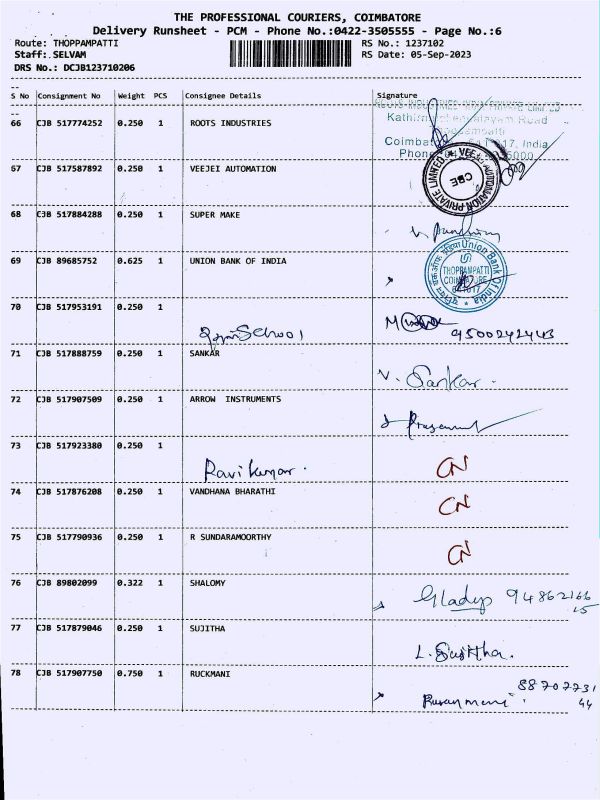 THE PROFESSIONAL COURIERS, COIMBATORE
Delivery Runsheet - PCM - Phone No.:0422-3505555 - Page No.:6
Route: THOPPAMPATTI RS No.: 1237102
Staff: SELVAM RS Date: 05-Sep-2023
DRS No.: DCJB123710206
S No Consignment No Weight PCS Consignee Details Signature
ROOTS INDUSTRIES INDIA PRIVATE LIMITED
66 CJB 517774252 0.250 1 ROOTS INDUSTRIES
Road
Thoppampatti
Coimbatore 641017, India
Phone
67 CJB 517587892 0.250 1 VEEJEI AUTOMATION
VEEJEI AUTOMATION PRIVATE LIMITED
CBE
68 CJB 517884288 0.250 1 SUPER MAKE
69 CJB 89685752 0.625 1 UNION BANK OF INDIA
Union Bank Of India
THOPPAMPATTI
COIMBATORE
641017
70 CJB 517953191 0.250 1
School
9500242443
71 CJB 517888759 0.250 1 SANKAR
V. Sankar.
72 CJB 517907509 0.250 1 ARROW INSTRUMENTS
73 CJB 517923380 0.250 1
Ravi kumar. CN
74 CJB 517876208 0.250 1 VANDHANA BHARATHI CN
75 CJB 517790936 0.250 1 R SUNDARAMOORTHY CN
76 CJB 89802099 0.322 1 SHALOMY
Gladys 94862166
77 CJB 517879046 0.250 1 SUJITHA
L. Sujitha.
78 CJB 517907750 0.750 1 RUCKMANI
88707731
44